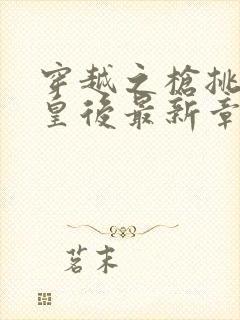 穿越之槍挑
皇後最新章
茗末